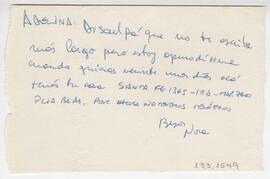 ADELINA: Disculpá que no te escriba
más largo pero estoy apuradísima
cuando quieras venirte unos días acá
tenés tu casa SANTA FE 1365 - 1ºB - MAR DEL
PLATA BS AS. POR AHORA NO TENEMOS TELÉFONO
Besos
Nora
133.1549